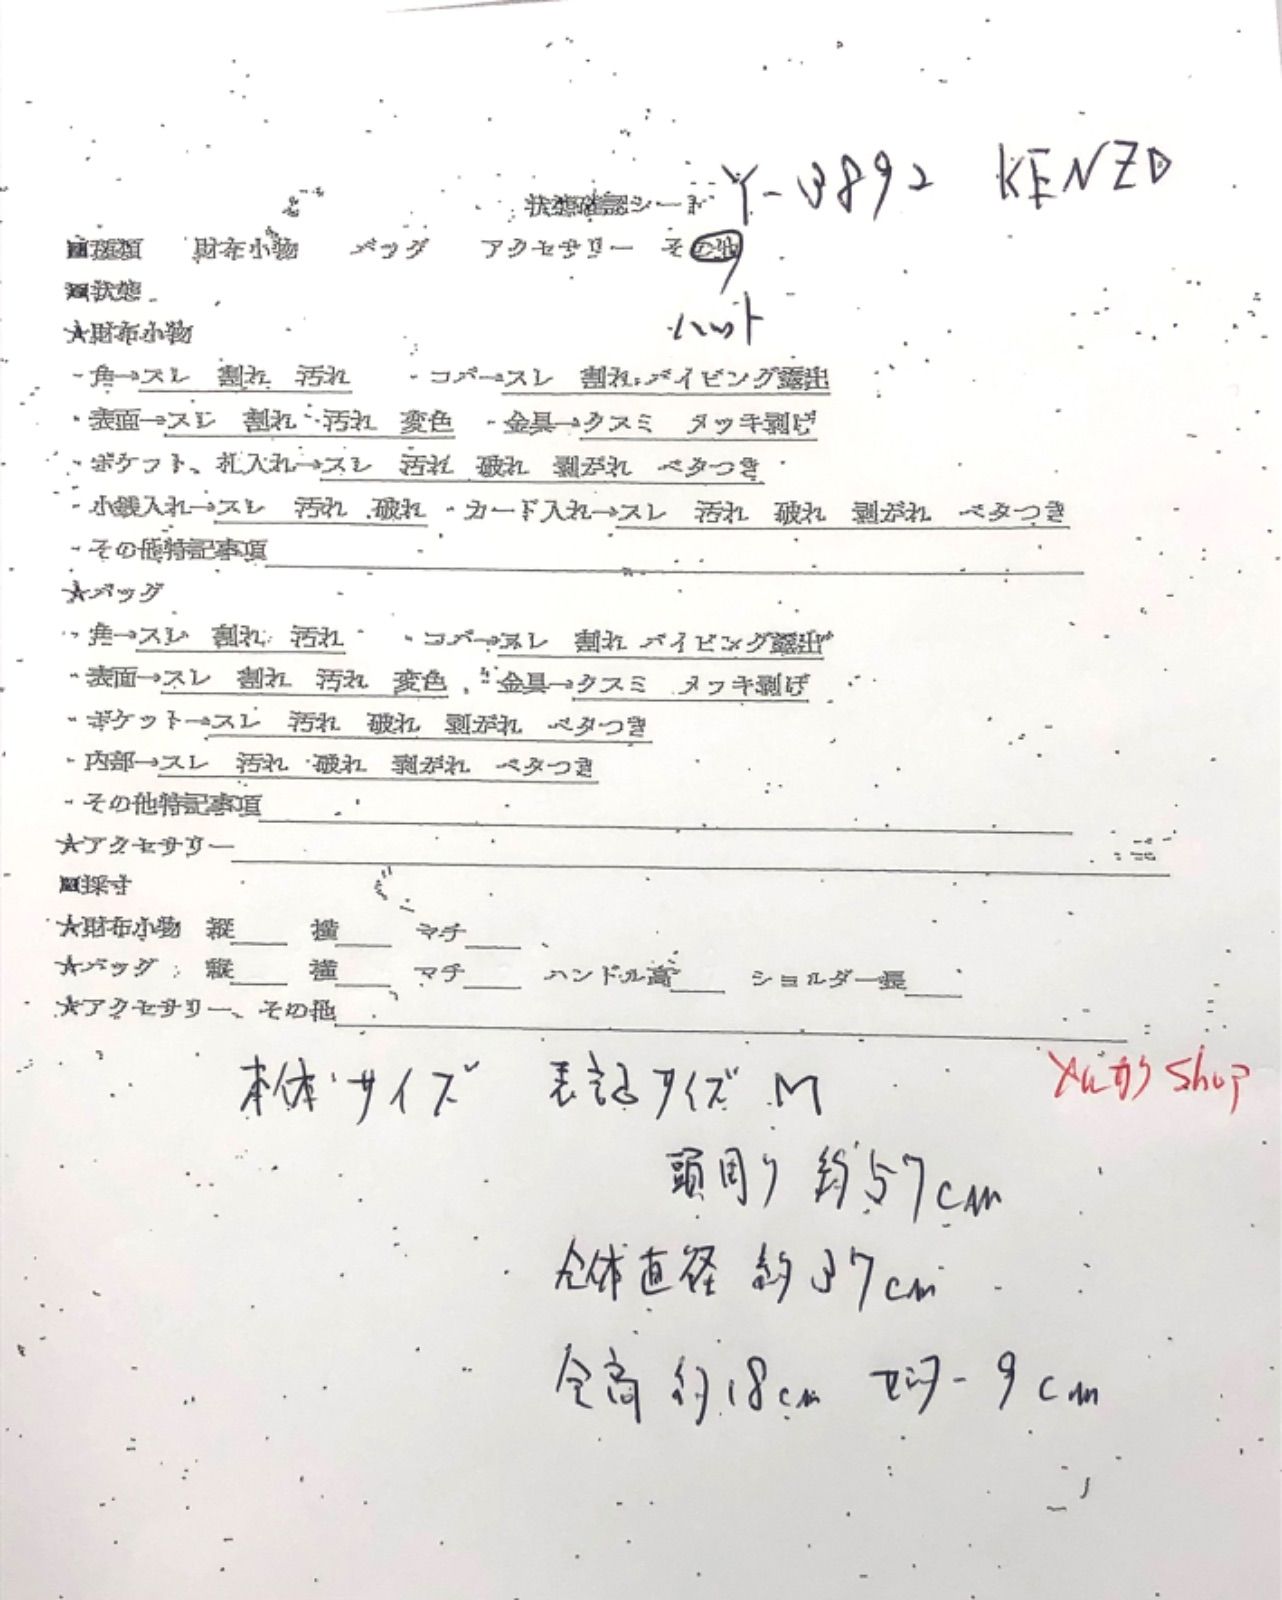 状態確認シート Y-3892 KENZO
■種類 財布小物 バッグ アクセサリー その他
■状態 ハット
★財布小物
・角→スレ 割れ 汚れ ・コバ→スレ 割れ パイピング露出
・表面→スレ 割れ 汚れ 変色 ・金具→クスミ メッキ剥げ
・ポケット、札入れ→スレ 汚れ 破れ 剥がれ ベタつき
・小銭入れ→スレ 汚れ 破れ ・カード入れ→スレ 汚れ 破れ 剥がれ ベタつき
・その他特記事項
★バッグ
・角→スレ 割れ 汚れ ・コバ→スレ 割れ パイピング露出
・表面→スレ 割れ 汚れ 変色 ・金具→クスミ メッキ剥げ
・ポケット→スレ 汚れ 破れ 剥がれ ベタつき
・内部→スレ 汚れ 破れ 剥がれ ベタつき
・その他特記事項
★アクセサリー
■採寸
★財布小物 縦 横 マチ
★バッグ 縦 横 マチ ハンドル高 ショルダー長
★アクセサリー、その他
本体サイズ 表記サイズ M
Shop
頭周り 約57cm
全体直径 約37cm
全高 約18cm 9cm